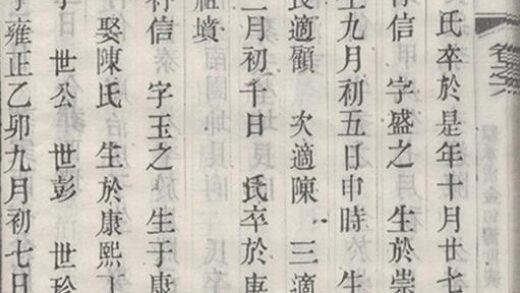 卷六
氏卒於是年十月廿七
信 字盛之 生於崇
九月初五日申時 生
長適顧 次適陳 三適
月初千日 氏卒於庚
祖墳
行信 字玉之 生于康
娶陳氏 生於康熙
子 世公 世彭 世珍
雍正乙卯九月初七日